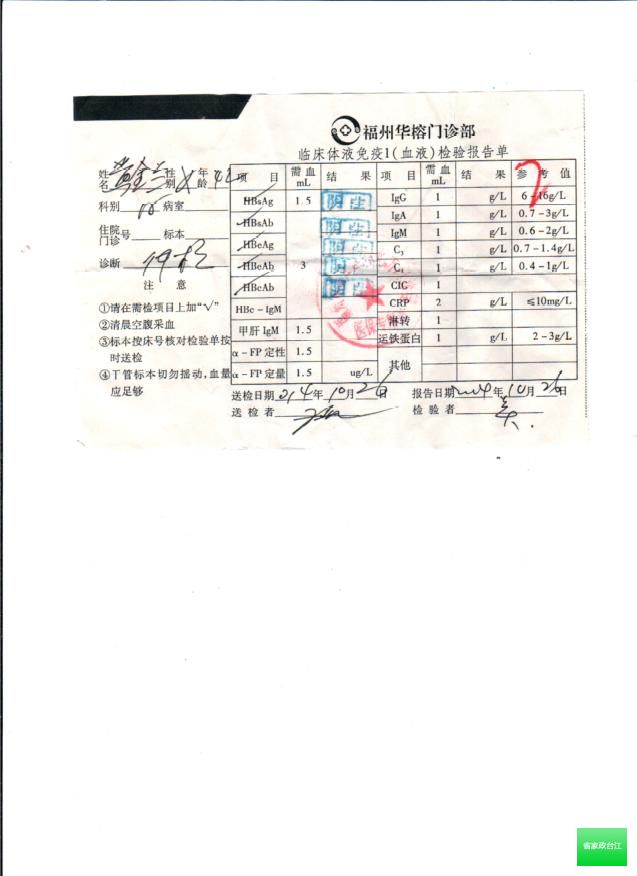 福州华榕门诊部
临床体液免疫1(血液)检验报告单
姓名 性别 女 年龄 42
科别 内 病室
住院门诊 号 标本
诊断
注 意
①请在需检项目上加“√”
②清晨空腹采血
③标本按床号核对检验单按时送检
④干管标本切勿摇动,血量应足够
项 目 需血mL 结 果 项 目 需血mL 结 果 参考值
HBsAg 1.5 阴性 IgG 1 g/L 6-16g/L
HBsAb 阴性 IgA 1 g/L 0.7-3g/L
HBeAg 阴性 IgM 1 g/L 0.6-2g/L
HBeAb 3 阴性 C3 1 g/L 0.7-1.4g/L
HBcAb 阴性 C4 1 g/L 0.4-1g/L
HBc-IgM CIC 1
甲肝IgM 1.5 CRP 2 g/L ≤10mg/L
α-FP定性 1.5 淋转 1
α-FP定量 1.5 ug/L 运铁蛋白 1 g/L 2-3g/L
其他
送检日期 214年10月26日 报告日期 年10月26日
送检者 检验者
省家政台江